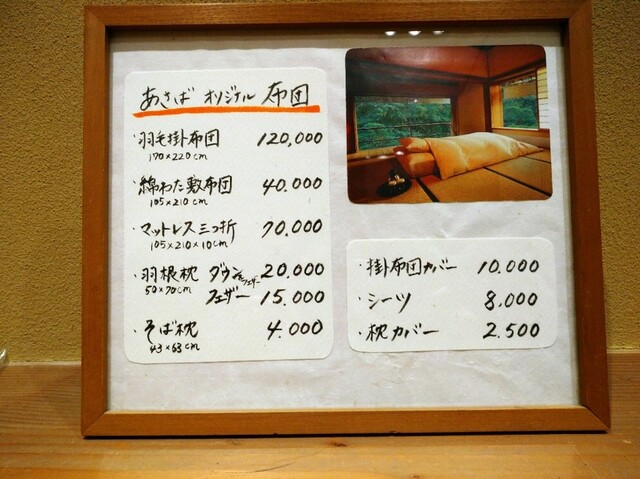 あさば オリジナル 布団
・羽毛掛布団 120,000
170×220cm
・綿わた敷布団 40.000
105×210cm
・マットレス三つ折 70.000
105×210×10cm
・羽根枕 ダウン 20,000
50×70cm フェザー 15.000
・そば枕 4.000
43×63cm
・掛布団カバー 10.000
・シーツ 8,000
・枕カバー 2.500